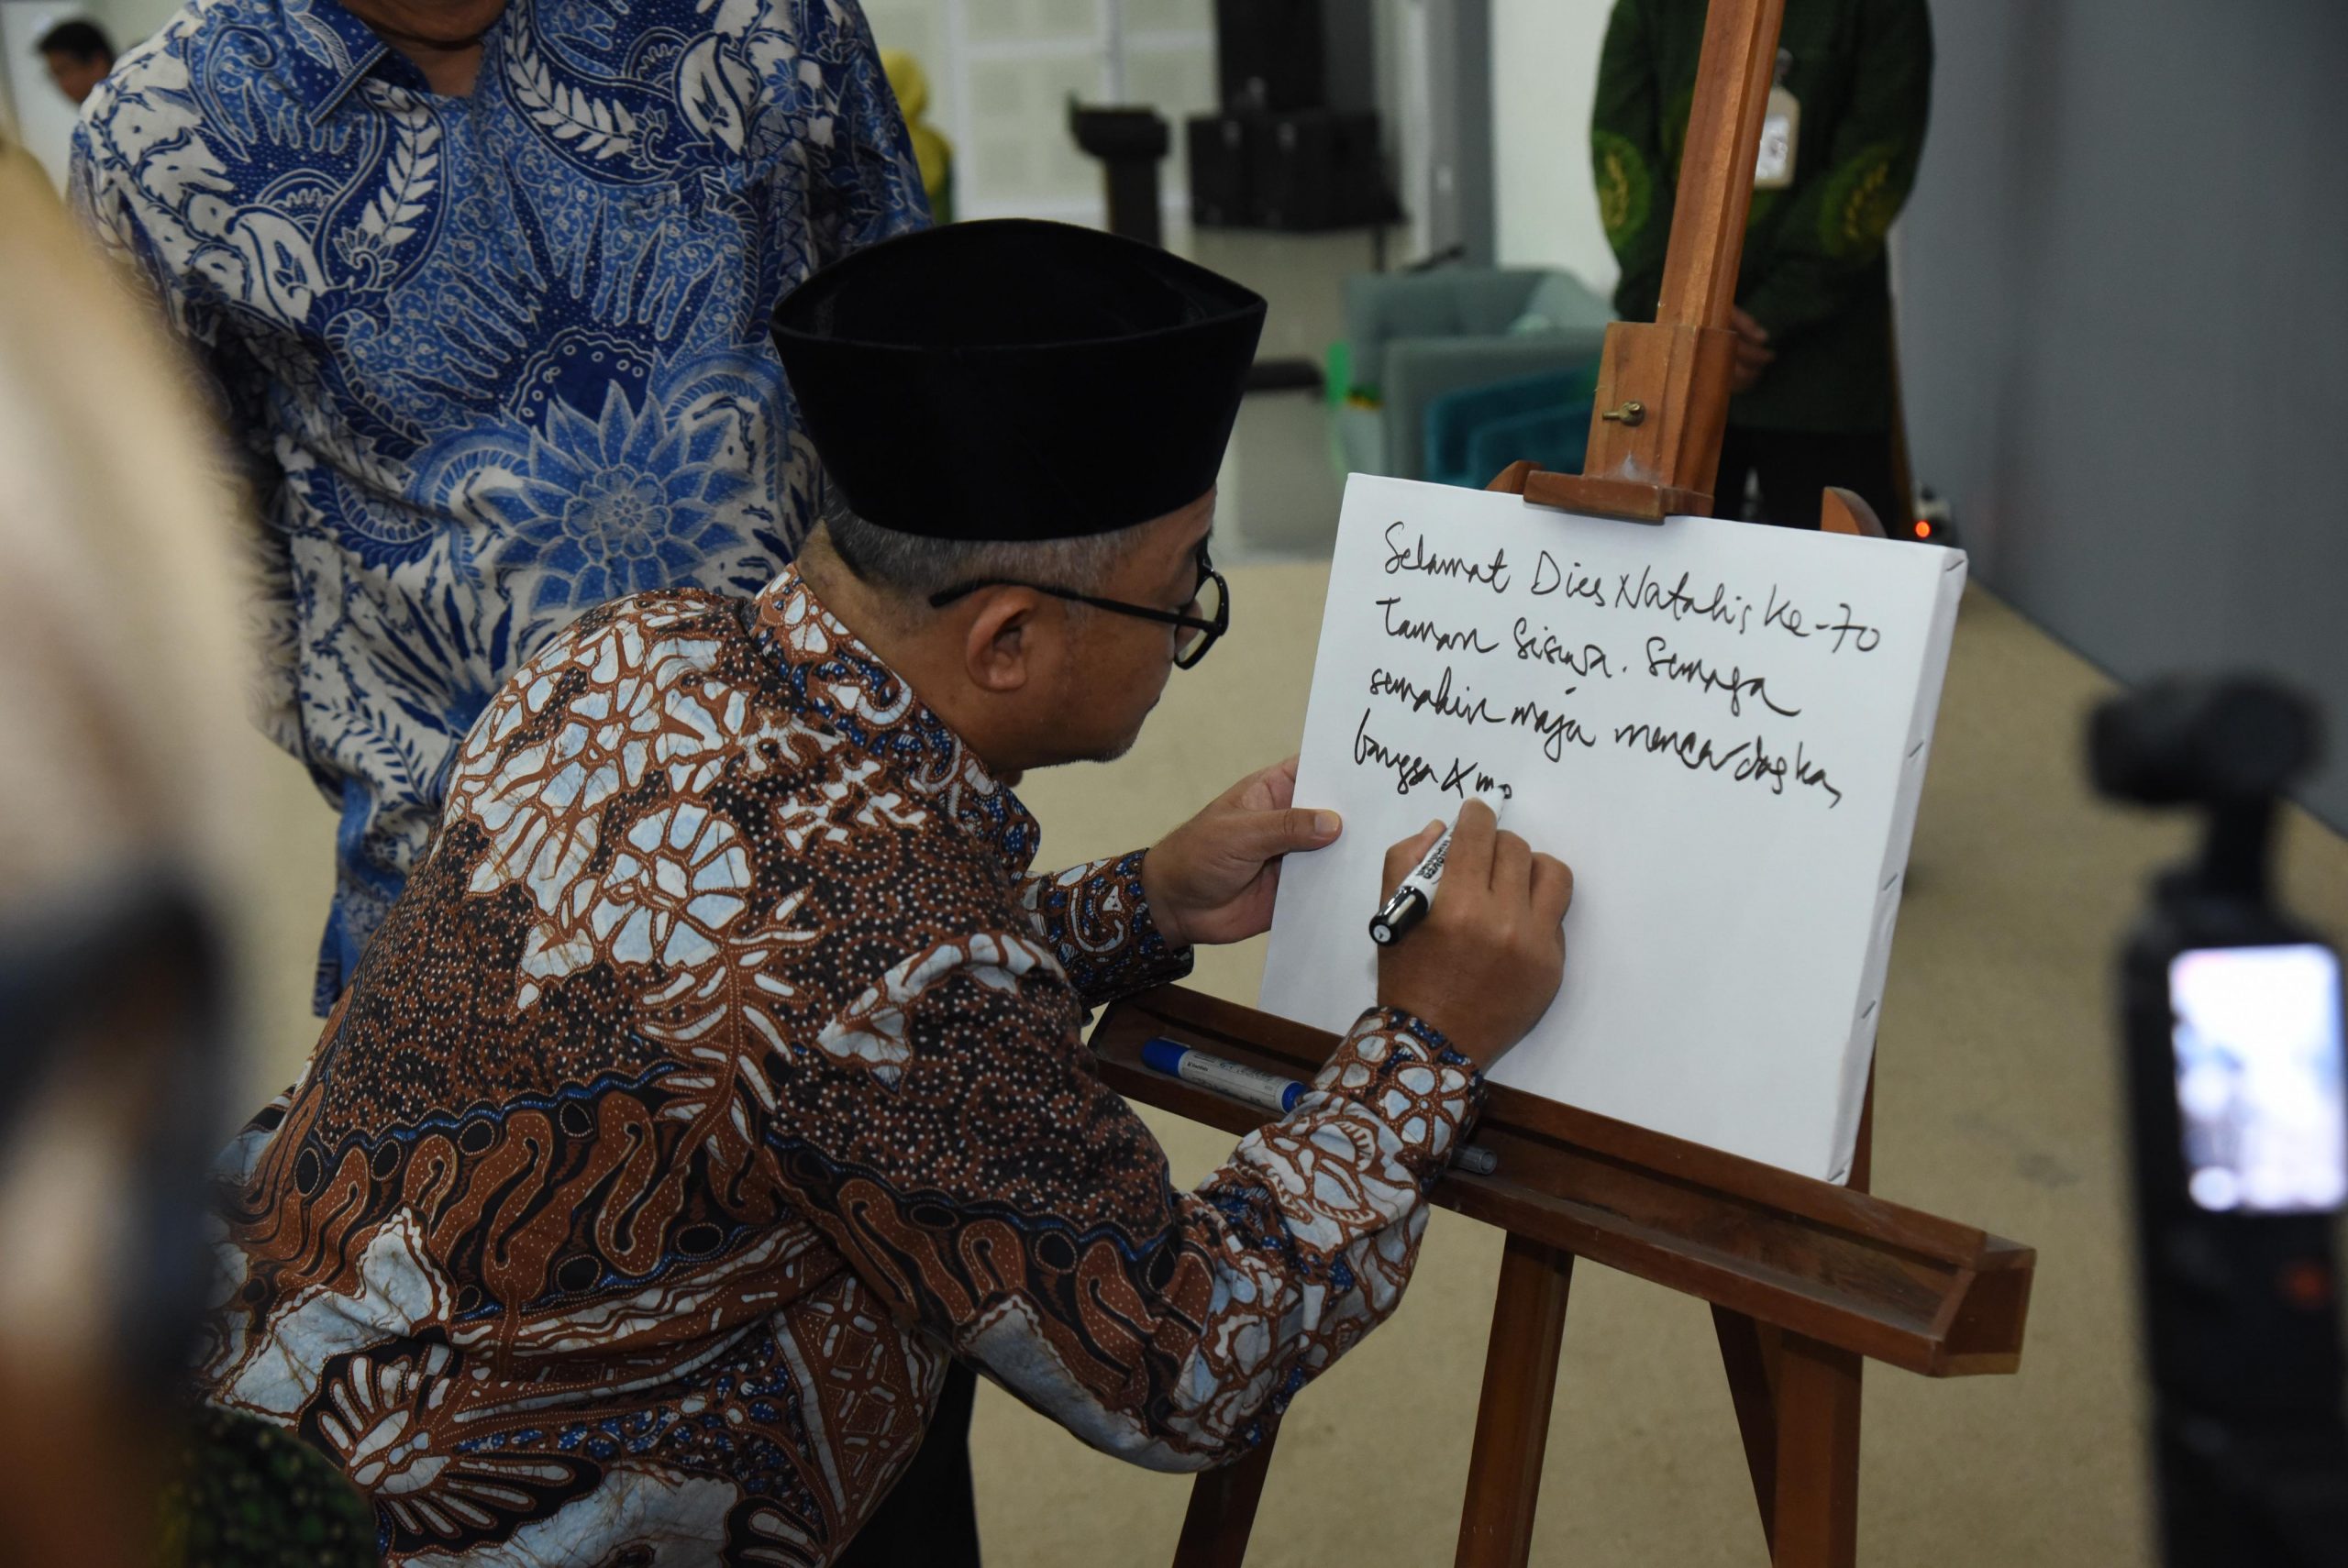 Selamat Dies Natalis Ke-70
Taman Siswa. Semoga
semakin maju mencerdaskan
bangsa & me